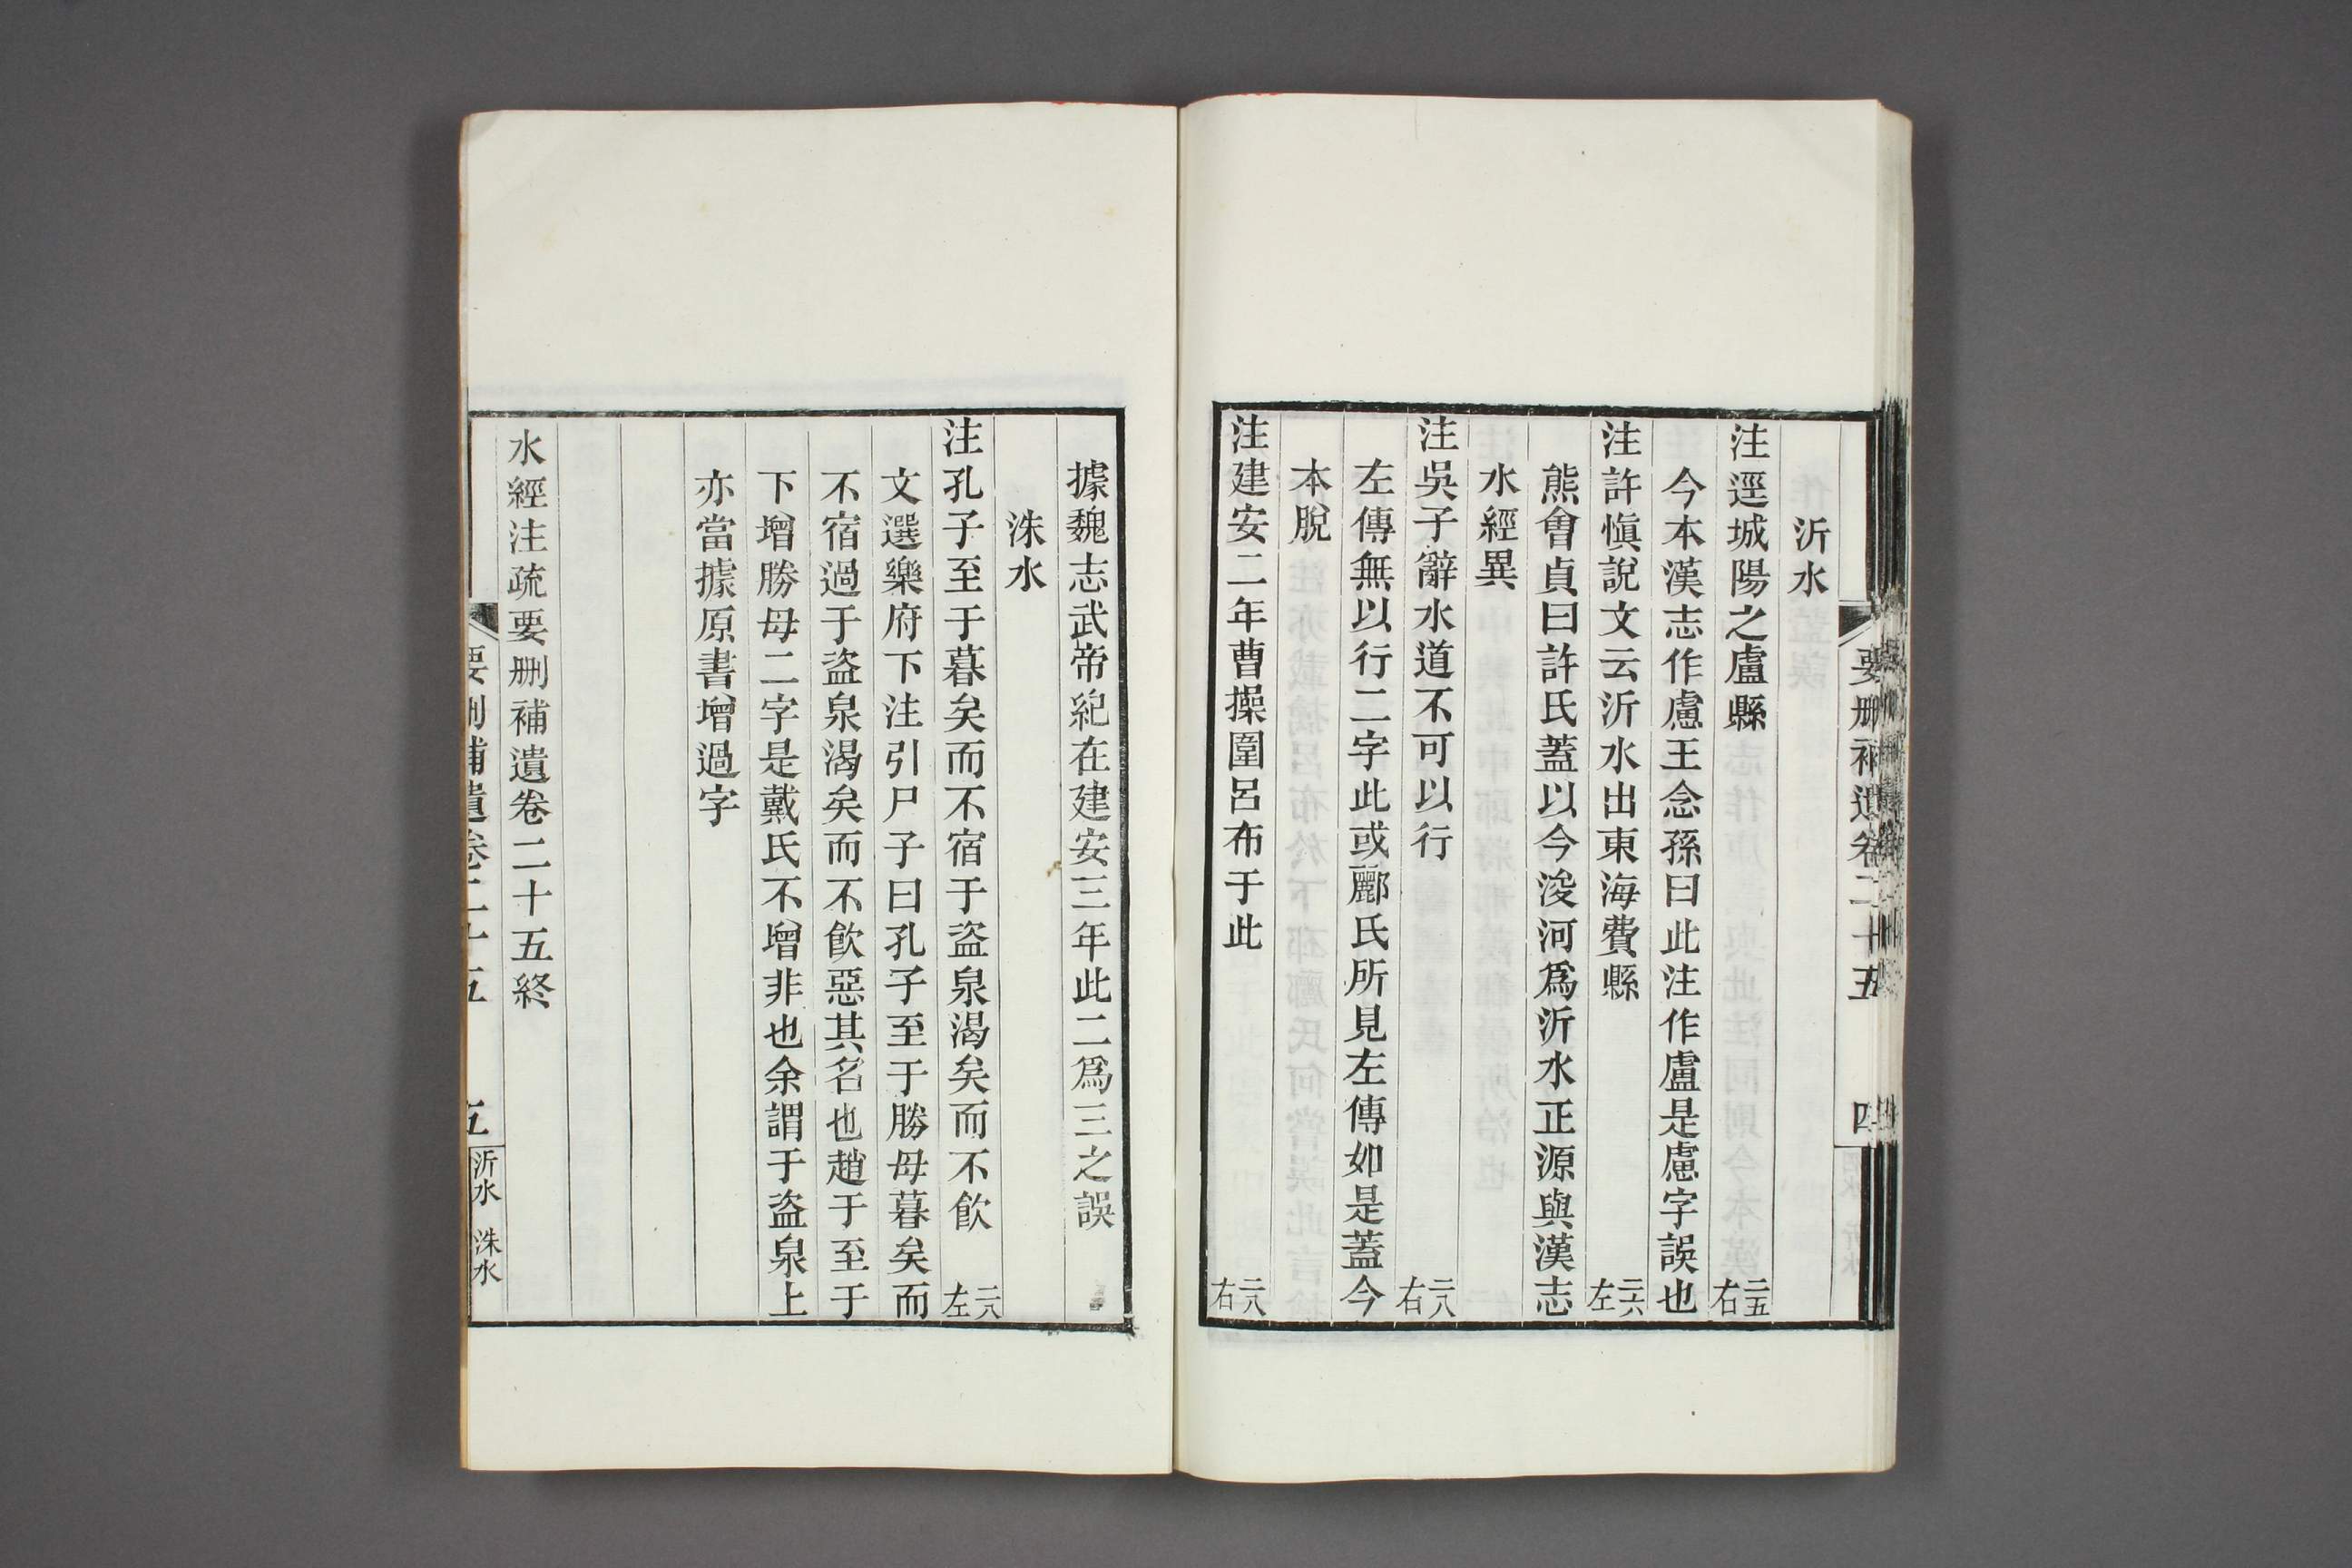 要刪補遺卷二十五
四
沂水
注逕城陽之盧縣 二五右
今本漢志作慮王念孫曰此注作盧是慮字誤也
注許愼說文云沂水出東海費縣 二六左
熊會貞曰許氏蓋以今浚河爲沂水正源與漢志
水經異
注吳子辭水道不可以行 二八右
左傳無以行二字此或酈氏所見左傳如是蓋今
本脫
注建安二年曹操圍呂布于此 二八右
據魏志武帝紀在建安三年此二爲三之誤
洙水
注孔子至于暮矣而不宿于盜泉渴矣而不飮 二八左
文選樂府下注引尸子曰孔子至于勝母暮矣而
不宿過于盜泉渴矣而不飮惡其名也趙于至于
下增勝母二字是戴氏不增非也余謂于盜泉上
亦當據原書增過字
水經注疏要刪補遺卷二十五終
要刪補遺卷二十五
五
沂水 洙水